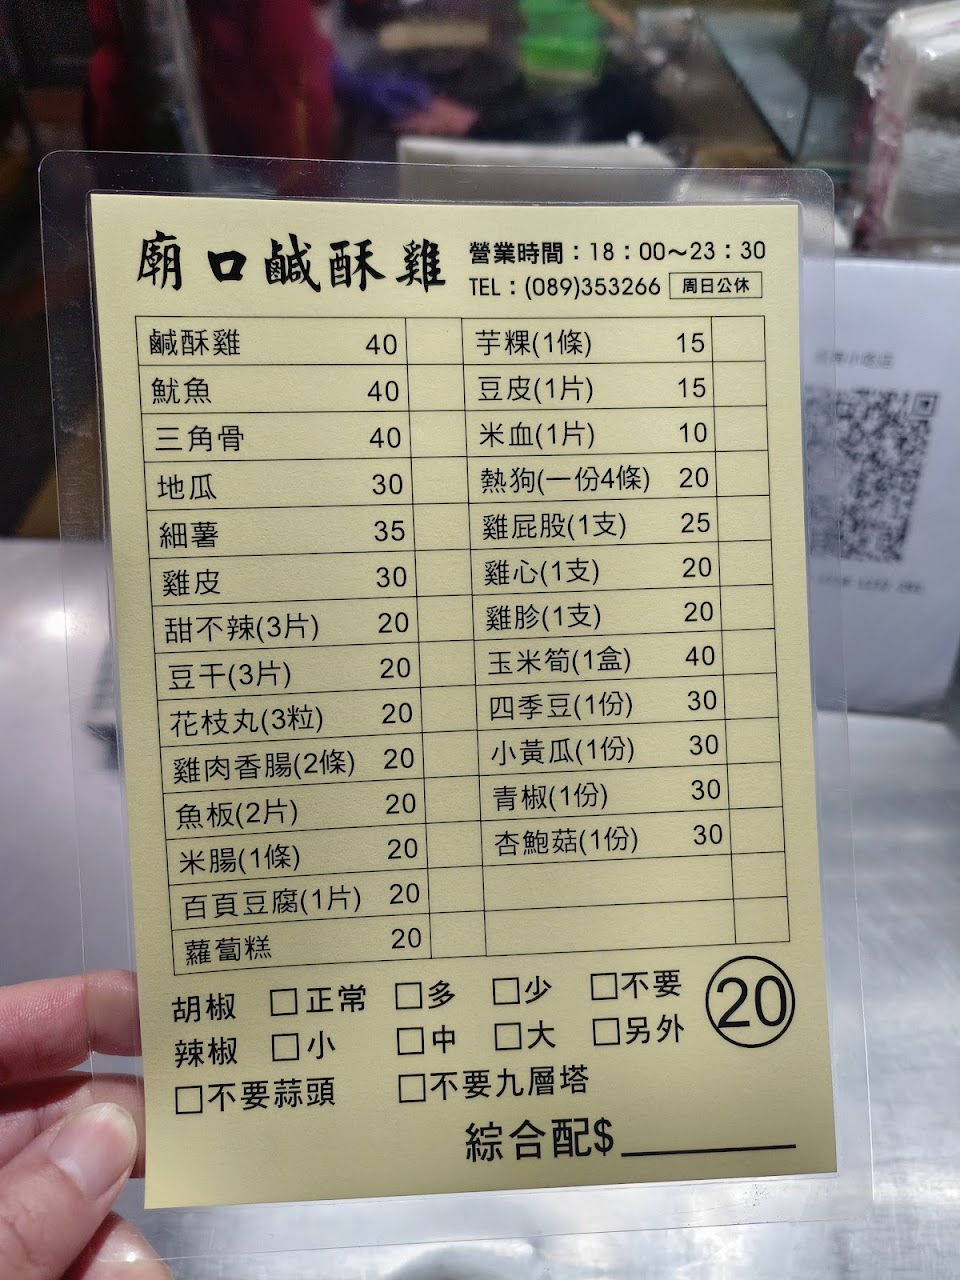 廟口鹹酥雞
營業時間：18：00～23：30
TEL：(089)353266 周日公休
鹹酥雞 40
魷魚 40
三角骨 40
地瓜 30
細薯 35
雞皮 30
甜不辣(3片) 20
豆干(3片) 20
花枝丸(3粒) 20
雞肉香腸(2條) 20
魚板(2片) 20
米腸(1條) 20
百頁豆腐(1片) 20
蘿蔔糕 20
芋粿(1條) 15
豆皮(1片) 15
米血(1片) 10
熱狗(一份4條) 20
雞屁股(1支) 25
雞心(1支) 20
雞胗(1支) 20
玉米筍(1盒) 40
四季豆(1份) 30
小黃瓜(1份) 30
青椒(1份) 30
杏鮑菇(1份) 30
胡椒 □正常 □多 □少 □不要
辣椒 □小 □中 □大 □另外
20
□不要蒜頭 □不要九層塔
綜合配$